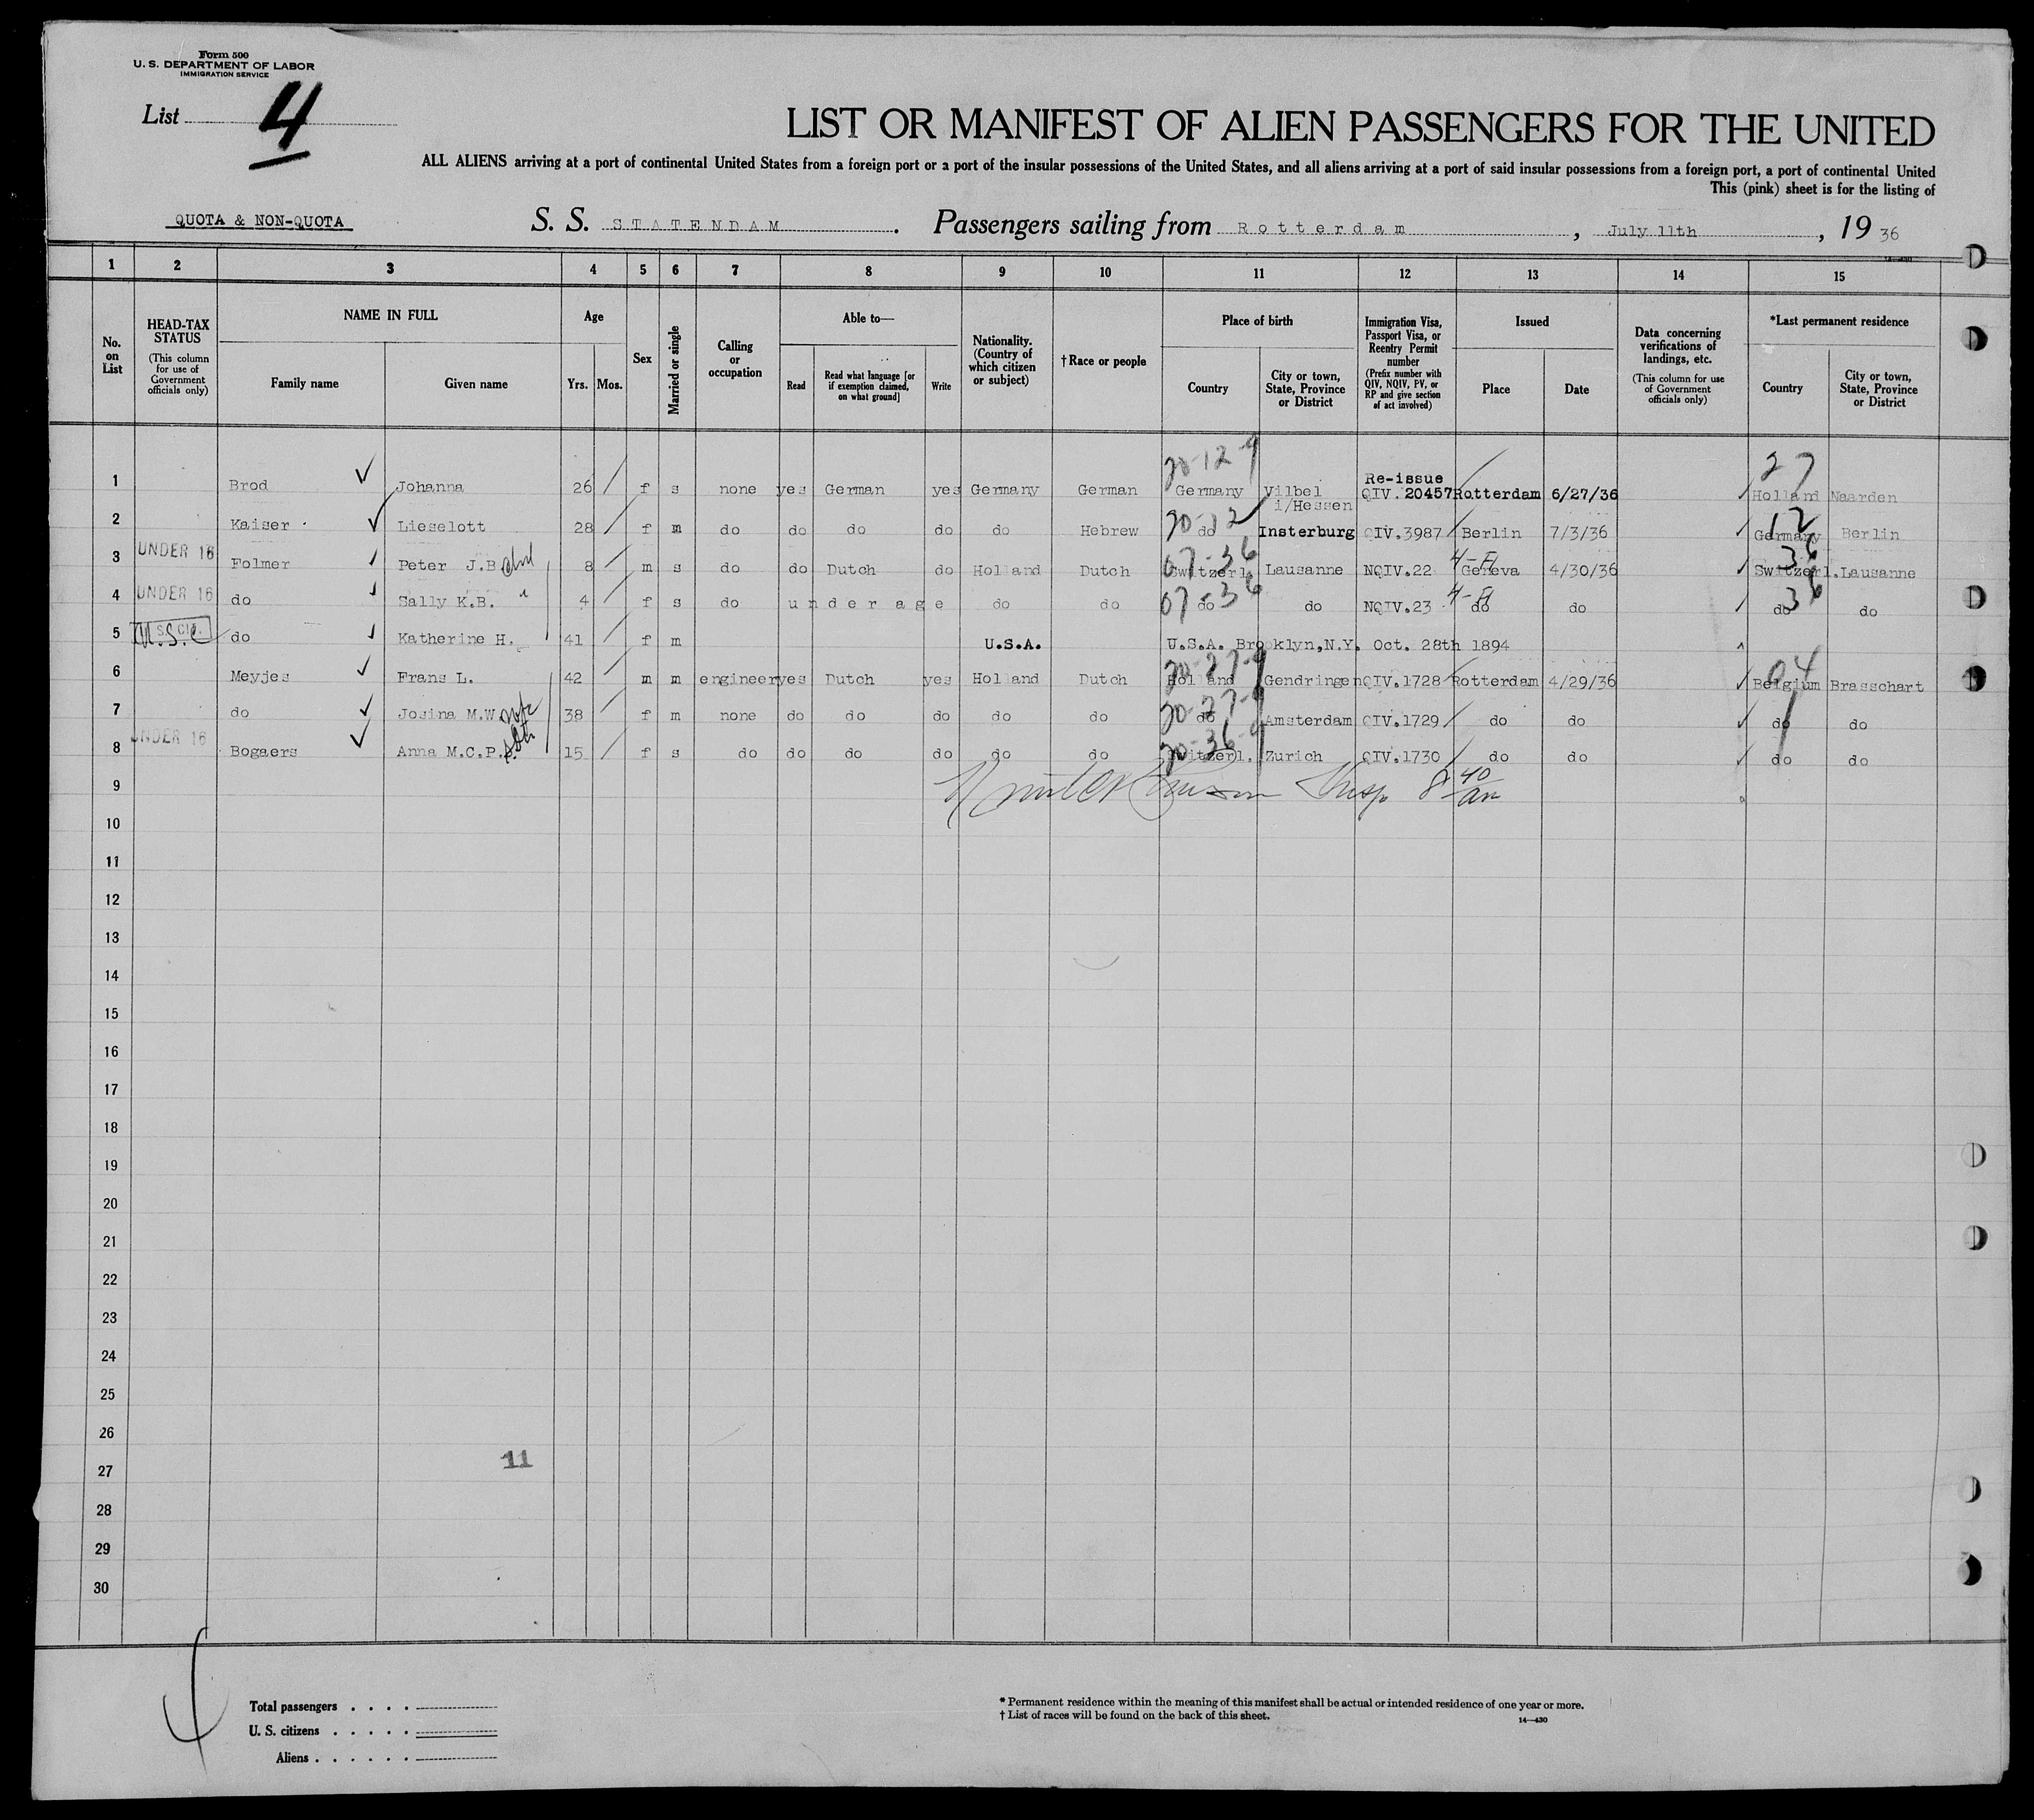 Form 500
U. S. DEPARTMENT OF LABOR
IMMIGRATION SERVICE
List 4
LIST OR MANIFEST OF ALIEN PASSENGERS FOR THE UNITED
ALL ALIENS arriving at a port of continental United States from a foreign port or a port of the insular possessions of the United States, and all aliens arriving at a port of said insular possessions from a foreign port, a port of continental United
This (pink) sheet is for the listing of
QUOTA & NON-QUOTA S. S. STATENDAM. Passengers sailing from Rotterdam, July 11th, 19 36
1 2 3 4 5 6 7 8 9 10 11 12 13 14 15
No. on List
HEAD-TAX STATUS (This column for use of Government officials only)
NAME IN FULL
Family name Given name
Age
Yrs. Mos.
Sex
Married or single
Calling or occupation
Able to—
Read Read what language [or if exemption claimed, on what ground] Write
Nationality. (Country of which citizen or subject)
†Race or people
Place of birth
Country City or town, State, Province or District
Immigration Visa, Passport Visa, or Reentry Permit number (Prefix number with QIV, NQIV, PV, or RP and give section of act involved)
Issued
Place Date
Data concerning verifications of landings, etc. (This column for use of Government officials only)
*Last permanent residence
Country City or town, State, Province or District
20-12-9 27
1 Brod Johanna 26 f s none yes German yes Germany German Germany Vilbel i/Hessen Re-issue QIV. 20457 Rotterdam 6/27/36 Holland Naarden
2 Kaiser Lieselott 28 f m do do do do do Hebrew do Insterburg QIV.3987 Berlin 7/3/36 Germany Berlin
20-12 12
3 UNDER 16 Folmer Peter J.B. 8 m s do do Dutch do Holland Dutch Switzerl. Lausanne NQIV.22 Geneva 4/30/36 Switzerl. Lausanne
07-36 36
4 UNDER 16 do Sally K.B. 4 f s do under age do do do do NQIV.23 do do do do
07-36 36
5 U.S.C. do Katherine H. 41 f m U.S.A. U.S.A. Brooklyn,N.Y. Oct. 28th 1894
6 Meyjes Frans L. 42 m m engineer yes Dutch yes Holland Dutch Holland Gendringen QIV.1728 Rotterdam 4/29/36 Belgium Brasschart
20-27-9 04
7 do Josina M.W. 38 f m none do do do do do do Amsterdam QIV.1729 do do do do
20-27-9
8 UNDER 16 Bogaers Anna M.C.P. 15 f s do do do do do do Switzerl. Zurich QIV.1730 do do do do
20-36-9
9 Insp 8 40 am
10
11
12
13
14
15
16
17
18
19
20
21
22
23
24
25
26
11
27
28
29
30
Total passengers . . . .
U. S. citizens . . . . .
Aliens . . . . . .
* Permanent residence within the meaning of this manifest shall be actual or intended residence of one year or more.
† List of races will be found on the back of this sheet.
14—430